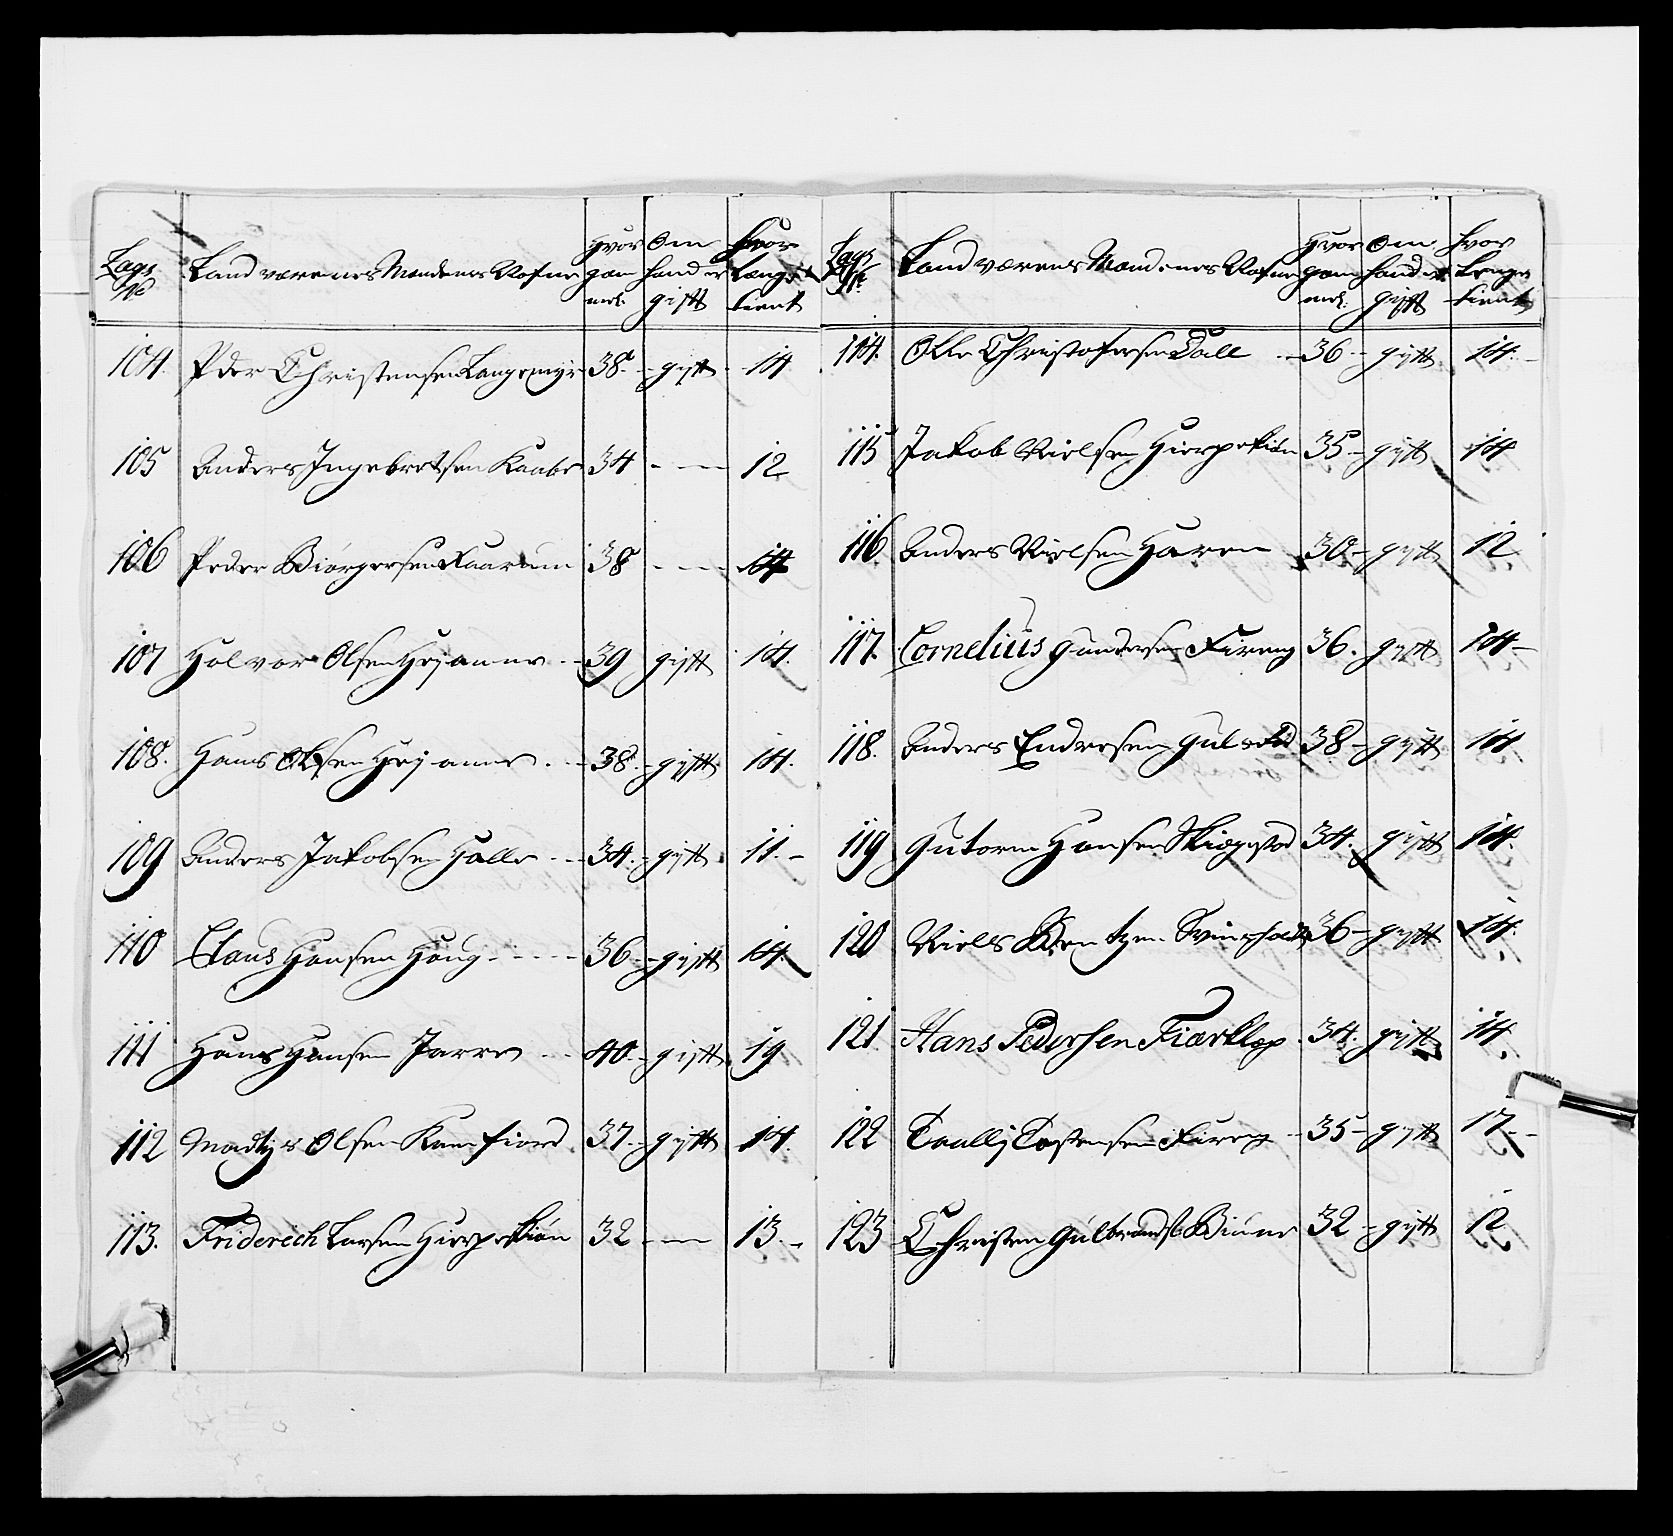 Lags No Land værenes Mandenes Nafne Hvor gam mel. Om hand er gift hvor længe tient
104. Peder Christensen Langemyr 38. - gift - 14
105 Anders Ingebretsen Kaabe 34 - - - 12
106 Peder Biörgersen Kaarum 38 - - - 14
107 Halvor Olsen Hejanne - 39 gift 14.
108. Hans Olsen Hejanne. - 38. - gift 14.
109 Anders Jakobsen Halle - - 34. - gift 11. -
110 Claus Hansen Haug - - - - 36 - gift 14
111 Hans Hansen Jarre - - 40 - gift 19
112 Madtis Olsen Kamfiord 37. - gift 14.
113. Friderich Larsen Hierpekiön 32 - - 13. -
Lags No Land værens Mandenes Nafne Hvor gam mel: Om hand er gift hvor lenge tient
114. Olle Christofersen Dall - 36 - gift 14. -
115 Jakob Nielsen Hierpekiön 35 - gift 14
116. Anders Nielsen Haren 30 - gift 12
117. Cornelius Gundersen Fireng 36. gift 14 -
118. Anders Endresen Gulsed 38 - gift 14
119 Gutorm Hansen Skiægestad 34. gift 14.
120 Niels Bentzen Svinsholt 36 - gift 14.
121 Hans Pedersen Fiærklep 34. gift 14.
122 Taallj Tostensen Fireng - 35 - gift 17. -
123 Christen Gulbrands. Biune 32 - gift 12